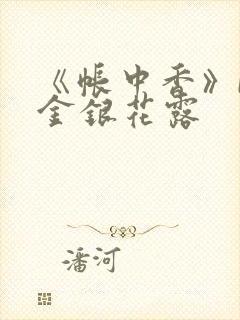 《帐中香》
金银花露
潘河